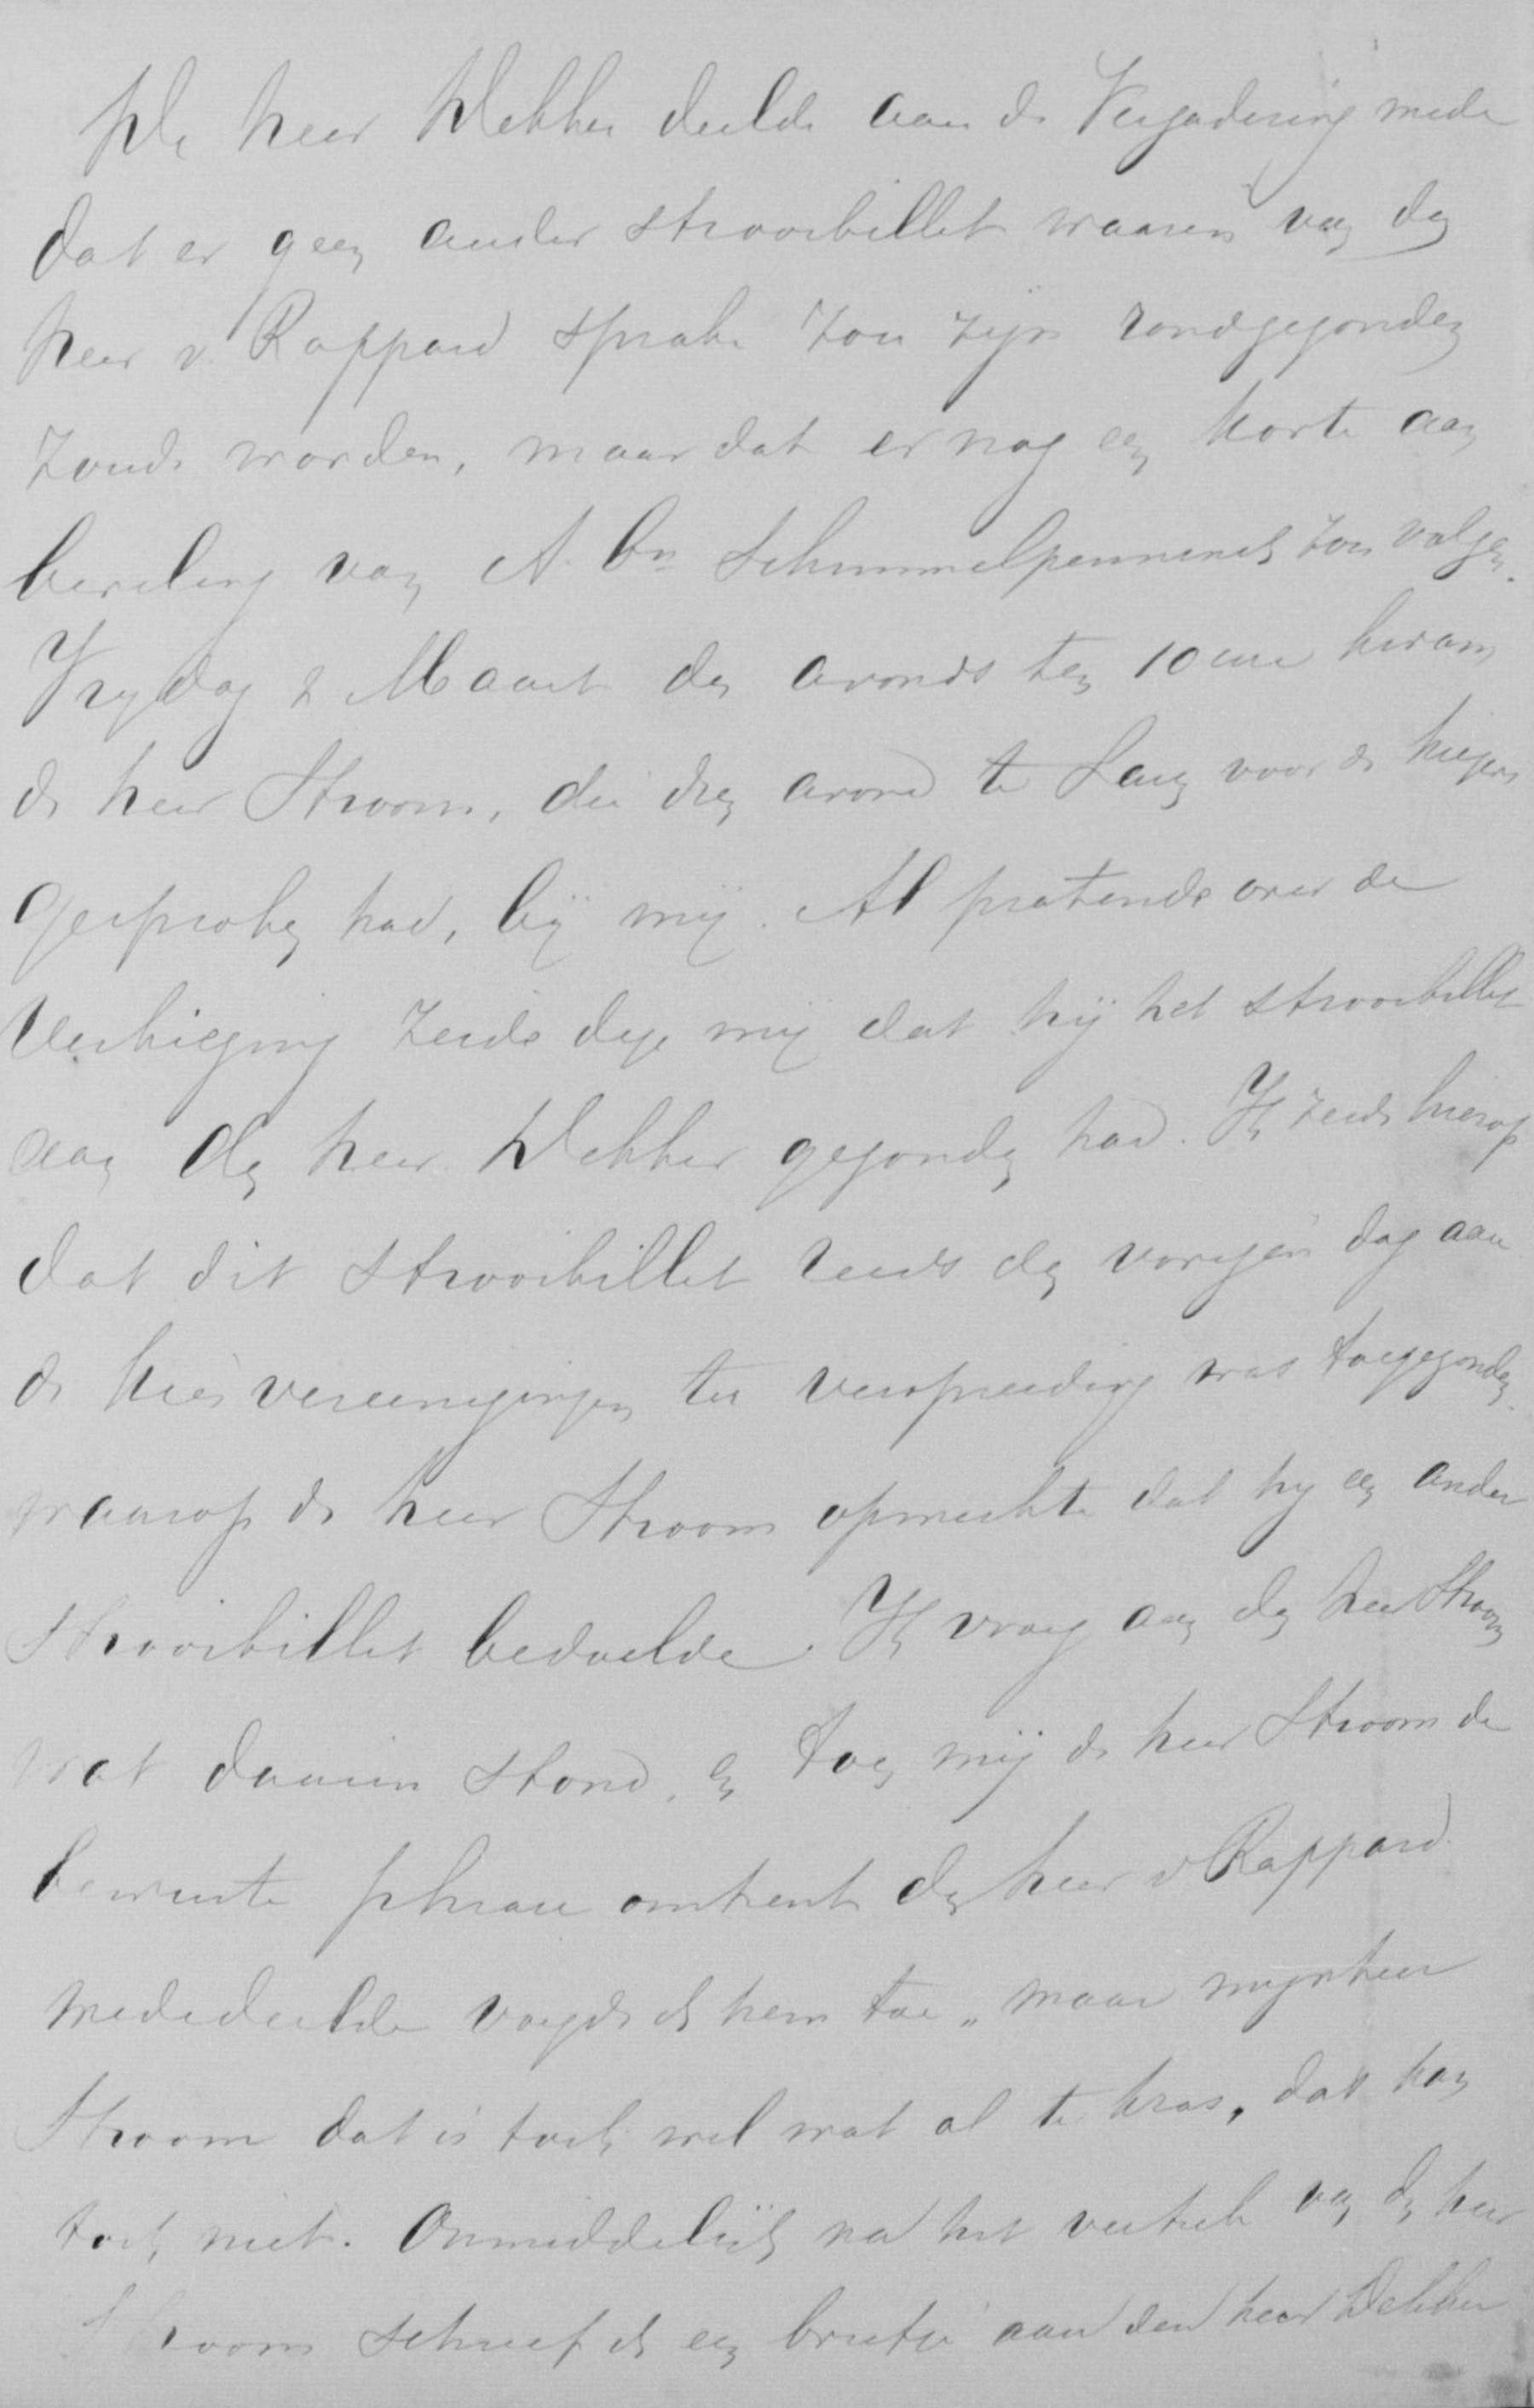 De heer Dekker deelde aan de Vergadering mede
dat er geen ander strooibillet waarin van den
heer v. Rappard sprake zou zijn rondgezonden
zoude worden, maar dat er nog een korte aan
beveling van A. Bn Schimmelpenninck zou volgen.
Vrydag 2 Maart des avonds ten 10 ure kwam
de heer Stroom, die dien avond te Laag voor de kiezers
gesproken had, bij mij. Al pratende over de
Verkiezing zeide deze mij dat hij het strooibillet
aan den heer Dekker gezonden had. Ik zeide hierop
dat dit strooibillet reeds den vorigen dag aan
de kiesvereenigingen ter verspreiding was toegezonden.
waarop de heer Stroom opmerkte dat hy een ander
strooibillet bedoelde. Ik vroeg aan den heer Stroom
wat daarin stond, en toen mij de heer Stroom de
bewuste phrase omtrent den heer v Rappard
mededeelde voegde ik hem toe „maar mynheer
Stroom dat is toch wel wat al te kras, dat kan
toch niet. Onmiddelijk na het vertrek van den heer
Stroom schreef ik een briefje aan den heer Dekker